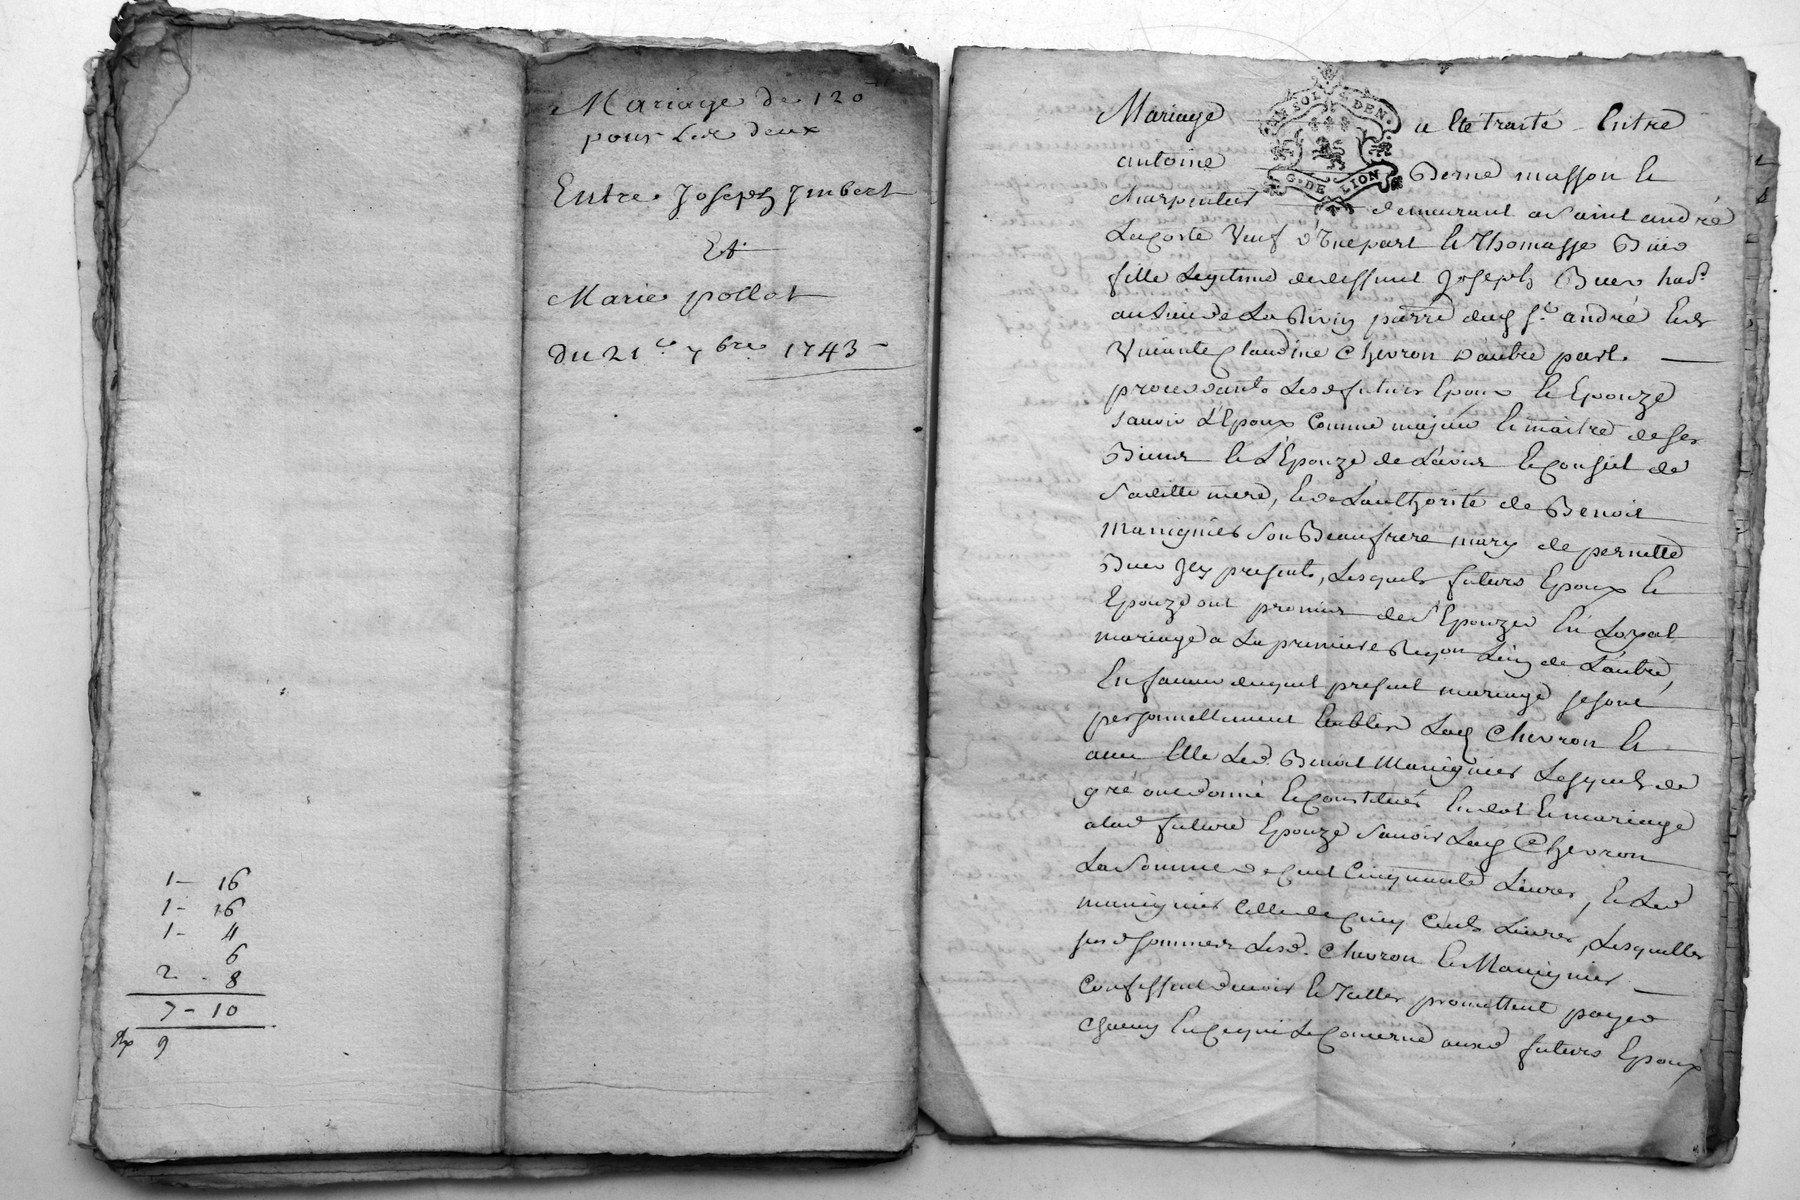 Mariage de 120
pour Les deux
Entre Joseph Jmbert
Et
Marie pollot
Du 21e 7bre 1743
1 - 16
1 - 16
1 - 4
6
2 - 8
7 - 10
9
Mariage a Eté traité Entre
UN SOL 4 DEN.
G. DE LION
antoine Berne masson Et
charpentier demeurant a Saint andré
LaCoste Veuf d'Une part Et Thomasse
fille Legitime de deffunt Joseph
au Lieu de La parre dud St. andré Et de
Vivante Claudine Chevron d'autre part.
proceddants Lesd futurs Epoux Et Epouze
sauoir L'Epoux Comme majeur Et maitre de ses
Biens Et L'Epouze de L'avis Et Conseil de
Saditte mere, Et de L'authorité de Benoit
manignier Son Beaufrere mary de pernette
presents, Lesquels futurs Epoux Et
Epouze ont promis de s'Epouzer En Loyal
mariage a La premiere L'un de L'autre,
En faueur duquel present mariage
personnellement Establie Lad Chevron Et
auec Elle Led. Benoit Manignier Lesquels de
gré ont donné Et Constitué En dot Et mariage
a lad future Epouze Sauoir Lad Chevron
La Somme de Cent Cinquante Liures, Et Led
manignier Celle de Cinq Cents Liures, Lesquelles
sommes Lesd. Chevron Et Manignier
Confessent deuoir Et Icelles promettent payer
Chacun En Ce qui Le Concerne auxd futurs Epoux